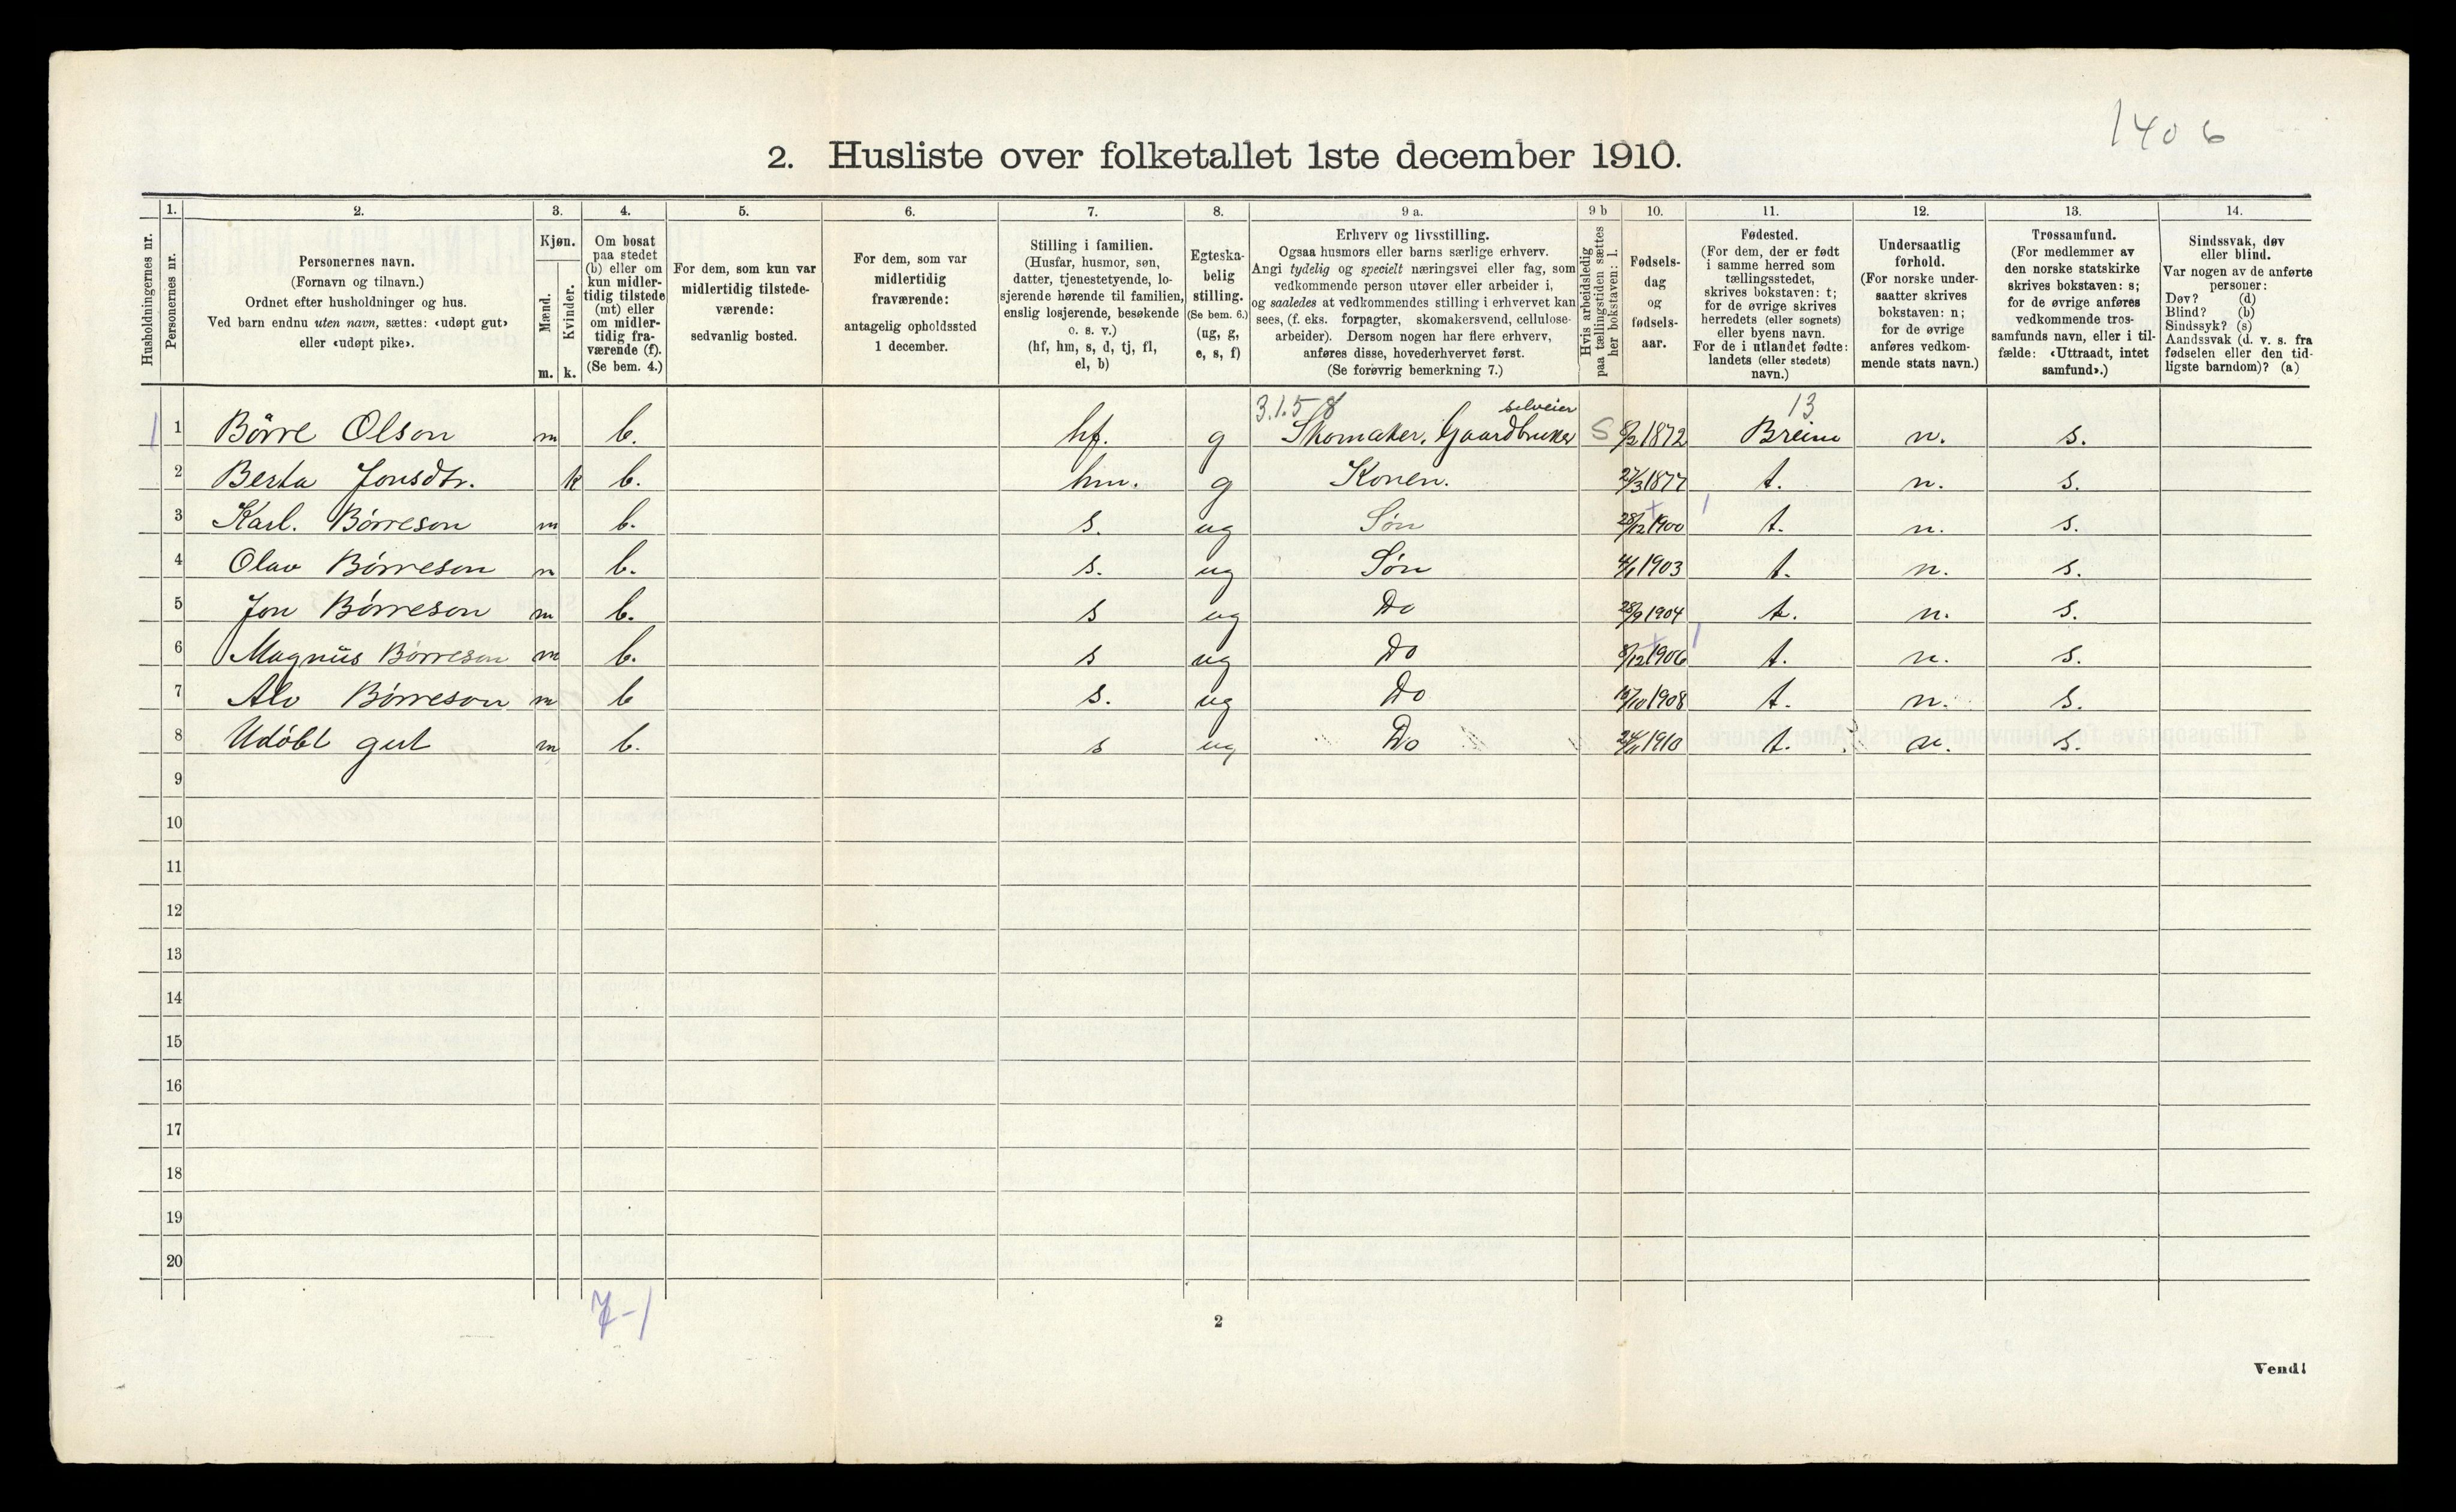 1406
2. Husliste over folketallet 1ste december 1910.
Husholdningernes nr.
1. Personernes nr.
2. Personernes navn.
(Fornavn og tilnavn.)
Ordnet efter husholdninger og hus.
Ved barn endnu uten navn, sættes: «udøpt gut»
eller «udøpt pike».
3. Kjøn.
Mænd. m.
Kvinder. k.
4. Om bosat
paa stedet
(b) eller om
kun midler-
tidig tilstede
(mt) eller
om midler-
tidig fra-
værende (f).
(Se bem. 4.)
5. For dem, som kun var
midlertidig tilstede-
værende:
sedvanlig bosted.
6. For dem, som var
midlertidig
fraværende:
antagelig opholdssted
1 december.
7. Stilling i familien.
(Husfar, husmor, søn,
datter, tjenestetyende, lo-
sjerende hørende til familien,
enslig losjerende, besøkende
o. s. v.)
(hf, hm, s, d, tj, fl,
el, b)
8. Egteska-
belig
stilling.
(Se bem. 6.)
(ug, g,
e, s, f)
9 a. Erhverv og livsstilling.
Ogsaa husmors eller barns særlige erhverv.
Angi tydelig og specielt næringsvei eller fag, som
vedkommende person utøver eller arbeider i,
og saaledes at vedkommendes stilling i erhvervet kan
sees, (f. eks. forpagter, skomakersvend, cellulose-
arbeider). Dersom nogen har flere erhverv,
anføres disse, hovederhvervet først.
(Se forøvrig bemerkning 7.)
9 b Hvis arbeidsledig
paa tællingstiden sættes
her bokstaven: l.
10. Fødsels-
dag
og
fødsels-
aar.
11. Fødested.
(For dem, der er født
i samme herred som
tællingsstedet,
skrives bokstaven: t;
for de øvrige skrives
herredets (eller sognets)
eller byens navn.
For de i utlandet fødte:
landets (eller stedets)
navn.)
12. Undersaatlig
forhold.
(For norske under-
saatter skrives
bokstaven: n;
for de øvrige
anføres vedkom-
mende stats navn.)
13. Trossamfund.
(For medlemmer av
den norske statskirke
skrives bokstaven: s;
for de øvrige anføres
vedkommende tros-
samfunds navn, eller i til-
fælde: «Uttraadt, intet
samfund».)
14. Sindssvak, døv
eller blind.
Var nogen av de anførte
personer:
Døv? (d)
Blind? (b)
Sindssyk? (s)
Aandssvak (d. v. s. fra
fødselen eller den tid-
ligste barndom)? (a)
3.1.58 selveier 13
1 1 Börre Olson m b. hf. g Skomaker, Gaardbruker S 8/2 1872 Breim n. s.
2 Berta Jonsdtr. k b. hm. g Konen. 27/3 1877 t. n. s.
3 Karl. Børreson m b. s. ug Søn 28/12 1900 t. n. s.
4 Olav Børreson m b. s. ug Søn 4/1 1903 t. n. s.
5 Jon Børreson m b. s ug Do 28/9 1904 t. n. s.
6 Magnus Børreson m b. s ug Do 8/12 1906 t. n. s.
7 Alv Børreson m b s. ug Do 15/10 1908 t. n. s.
8 Udöbt gut m b. s ug Do 24/11 1910 t. n. s.
9
10
11
12
13
14
15
16
17
18
19
20
7-1
2
Vend!